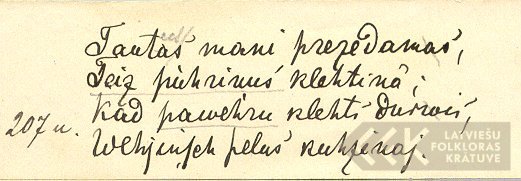 Tautas mani prezedamas,
Teiz puhrinus klehtinâ;
Kad pawehru klehts durwis,
207 u.
Wehjinsch pelus kuhpinaj.
LATVIEŠU
FOLKLORAS
KRĀTUVE